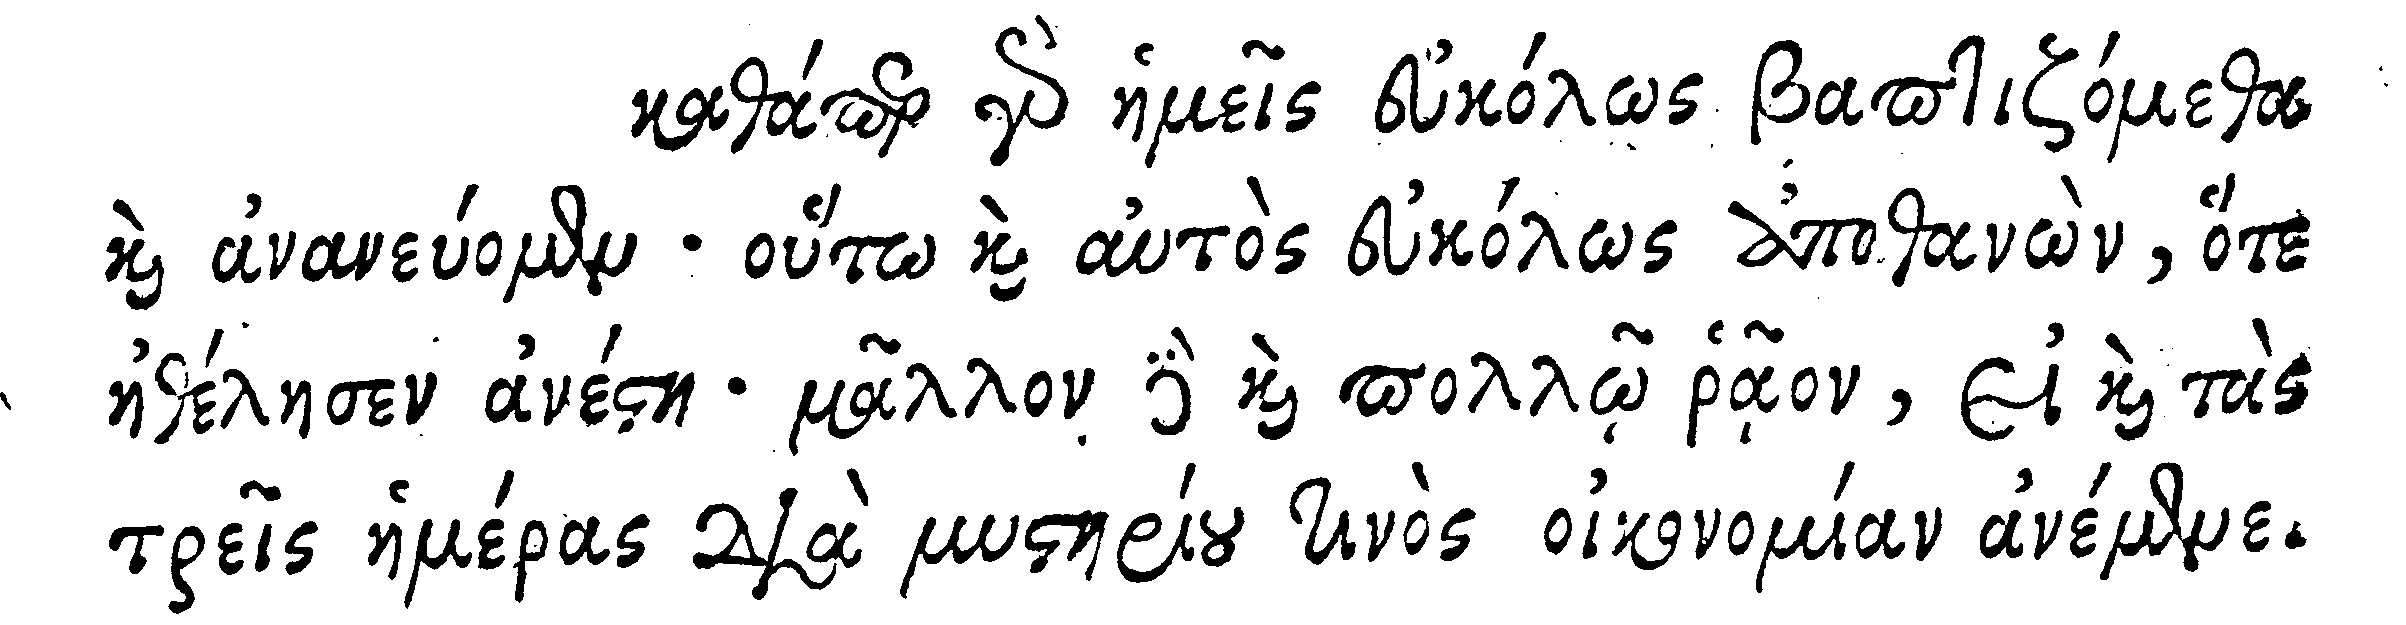 καθάπερ γὰρ ἡμεῖς εὐκόλως βαπτιζόμεθα
καὶ ἀνανεύομεν · οὕτω καὶ αὐτὸς εὐκόλως ἀποθανὼν, ὅτε
ἠθέλησεν ἀνέστη · μᾶλλον δὲ καὶ πολλῷ ῥᾷον, εἰ καὶ τὰς
τρεῖς ἡμέρας διὰ μυστηρίου τινὸς οἰκονομίαν ἀνέμενε.